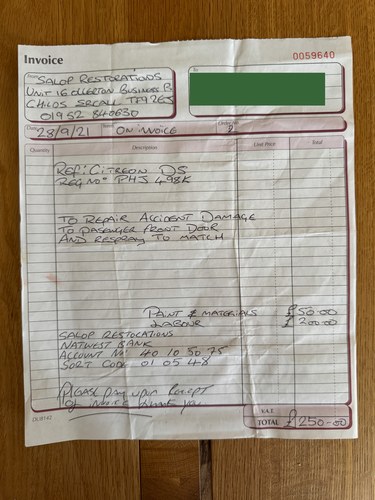 Invoice
0059640
From SALOP RESTORATIONS
UNIT 16 OLLERTON BUSINESS P
CHILDS ERCALL TF9 2EJ
01952 840630
To
Date 28/9/21 Terms ON INVOICE Order No.
Quantity Description Unit Price Total
REF: CITREON DS
REG NO: PHJ 498K
TO REPAIR ACCIDENT DAMAGE
TO PASENGER FRONT DOOR
AND RESPRAY TO MATCH
PAINT & MATERIALS £50.00
LABOUR £200.00
SALOP RESTORATIONS
NATWEST BANK
ACCOUNT NO: 40 10 50 75
SORT CODE 01 05 48
PLEASE pay upon Receipt
of INVOICE thank you
V.A.T.
TOTAL £250-00